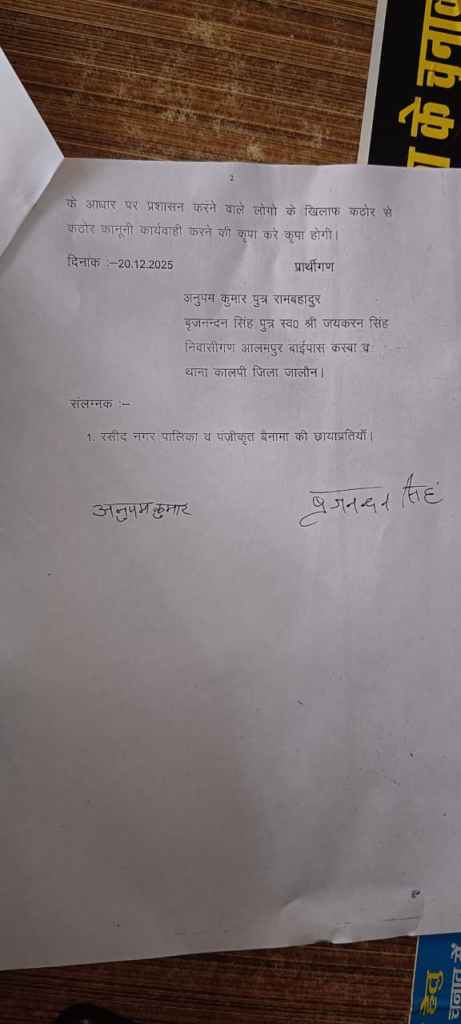 के चुनाव
2
के आधार पर प्रशासन करने वाले लोगो के खिलाफ कठोर से
कठोर कानूनी कार्यवाही करने की कृपा करे कृपा होगी।
दिनांक :–20.12.2025 प्रार्थीगण
अनुपम कुमार पुत्र रामबहादुर
बृजनन्दन सिंह पुत्र स्व0 श्री जयकरन सिंह
निवासीगण आलमपुर बाईपास कस्बा व
थाना कालपी जिला जालौन।
संलग्नक :–
1. रसीद नगर पालिका व पंजीकृत बैनामा की छायाप्रतियाँ।
अनुपम कुमार
बृजनन्दन सिंह
हेतु
चुनाव में